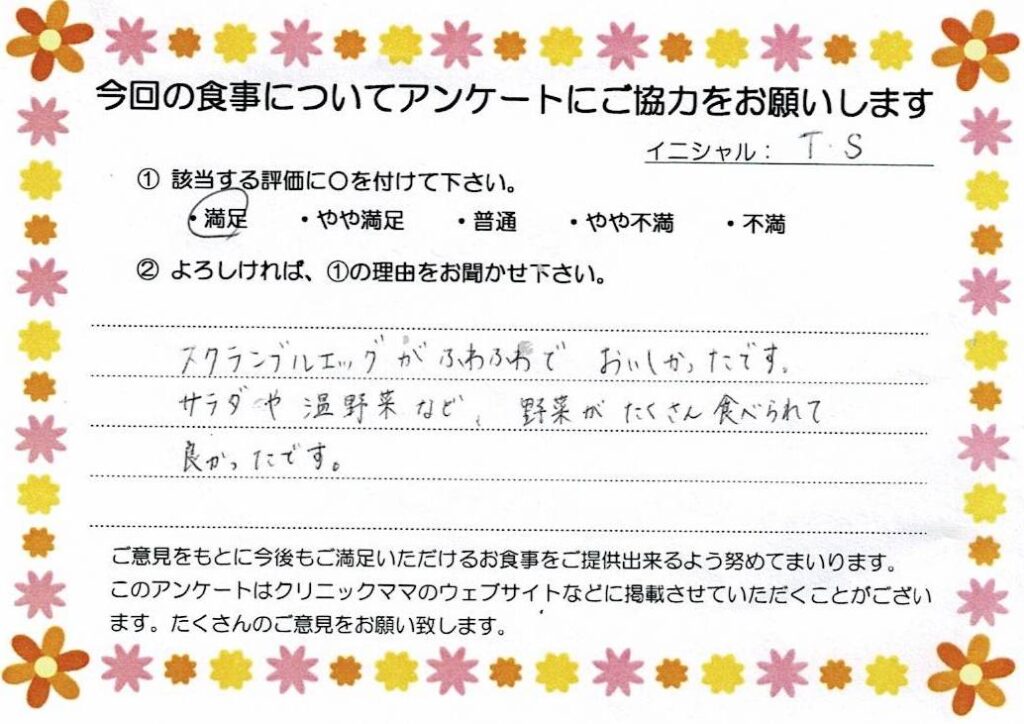 今回の食事についてアンケートにご協力をお願いします
イニシャル： T.S
① 該当する評価に○を付けて下さい。
・満足 ・やや満足 ・普通 ・やや不満 ・不満
② よろしければ、①の理由をお聞かせ下さい。
スクランブルエッグがふわふわで おいしかったです。
サラダや温野菜など、野菜がたくさん食べられて
良かったです。
ご意見をもとに今後もご満足いただけるお食事をご提供出来るよう努めてまいります。
このアンケートはクリニックママのウェブサイトなどに掲載させていただくことがござい
ます。たくさんのご意見をお願い致します。